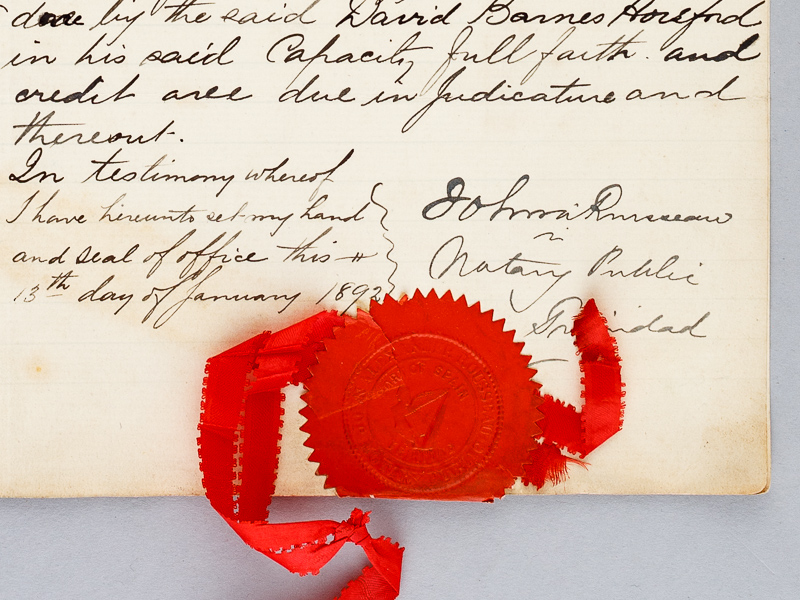 done by the said David Barnes Horsford
in his said Capacity full faith and
credit are due in Judicature and
thereout.
In testimony whereof
I have hereunto set my hand
and seal of office this
13th day of January 1892
John A Rousseau
Notary Public
Trinidad
OF SPAIN